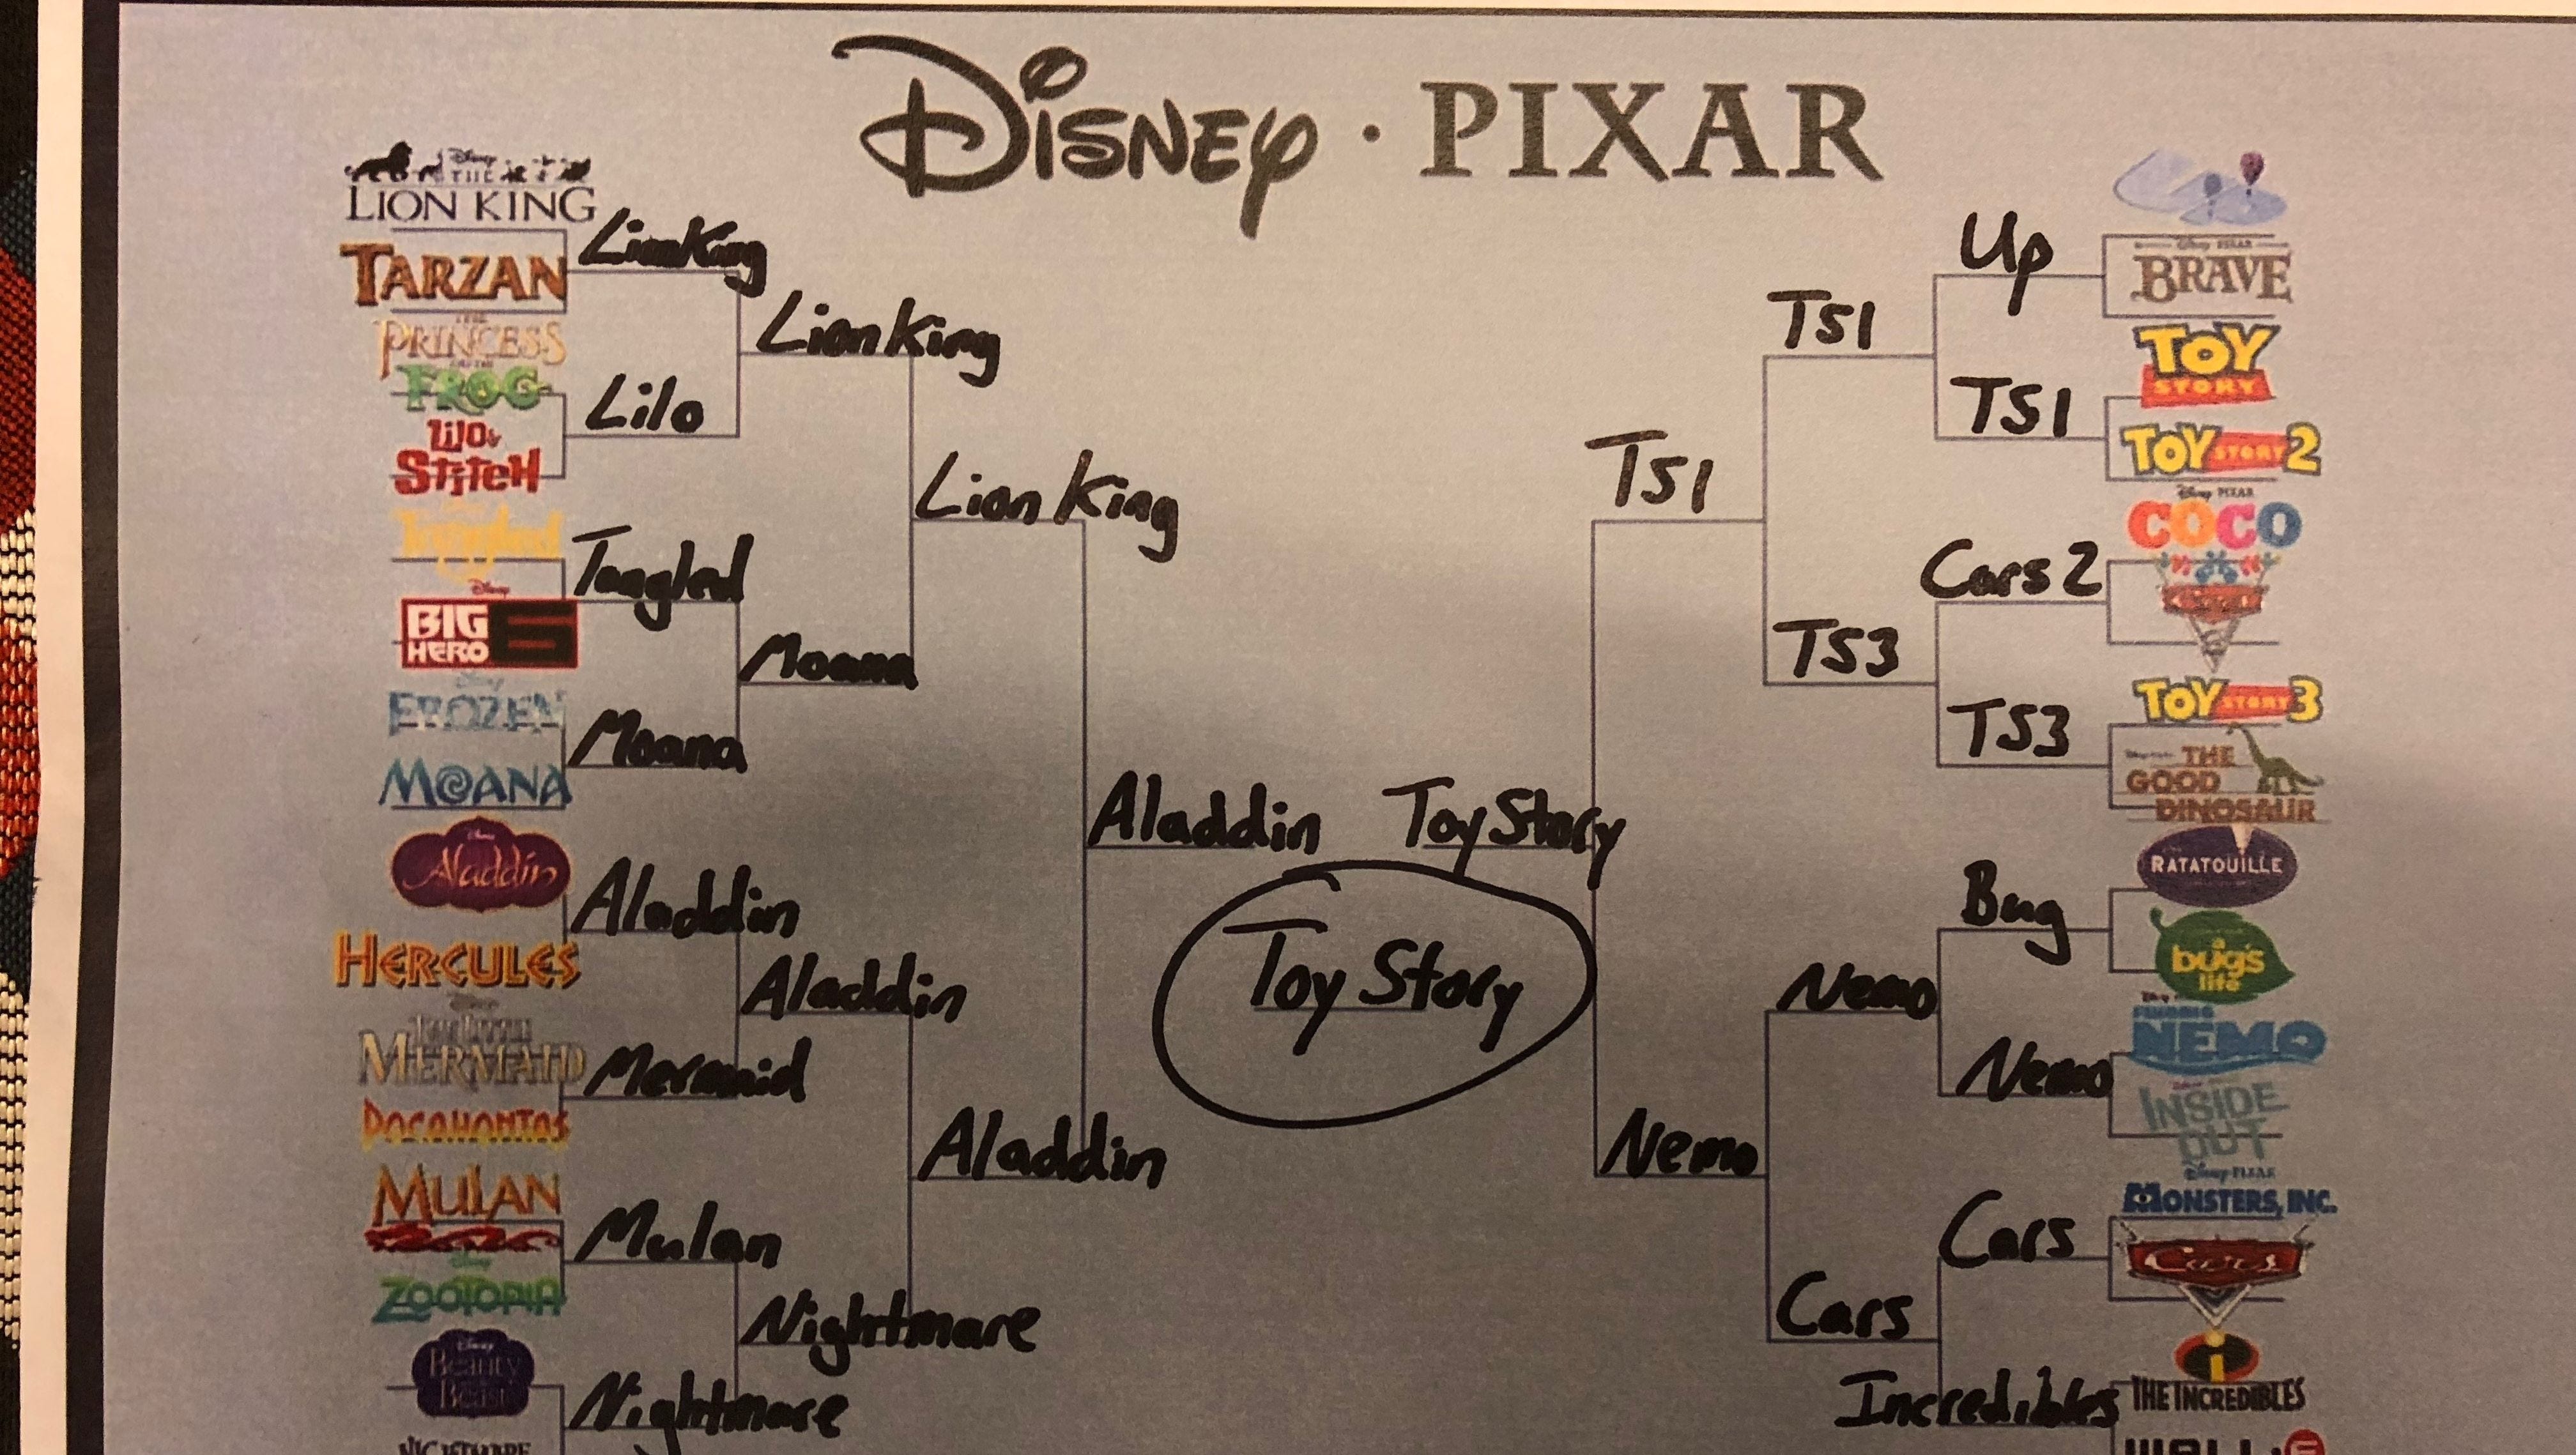 Disney · PIXAR
Disney
THE
LION KING
TARZAN
THE
PRINCESS
AND THE
FROG
LiLO &
STiTCH
Tangled
Disney
BIG
HERO 6
Disney
FROZEN
MOANA
Disney
Aladdin
HERCULES
Disney
THE LITTLE
MERMAID
POCAHONTAS
MULAN
Disney
ZOOTOPIA
Disney
Beauty
Beast
NIGHTMARE
Lion King
Lilo
Tangled
Moana
Aladdin
Mermaid
Mulan
Nightmare
Lion King
Moana
Aladdin
Nightmare
Lion King
Aladdin
Aladdin
Toy Story
Toy Story
TS1
Nemo
TS1
TS3
Nemo
Cars
Up
TS1
Cars 2
TS3
Bug
Nemo
Cars
Incredibles
Disney PIXAR
BRAVE
TOY
STORY
TOY STORY 2
Disney PIXAR
COCO
Cars
TOY STORY 3
THE
GOOD
DINOSAUR
RATATOUILLE
a
bug's
life
FINDING
NEMO
INSIDE
OUT
Disney·PIXAR
MONSTERS, INC.
Cars
THE INCREDIBLES
WALL·E